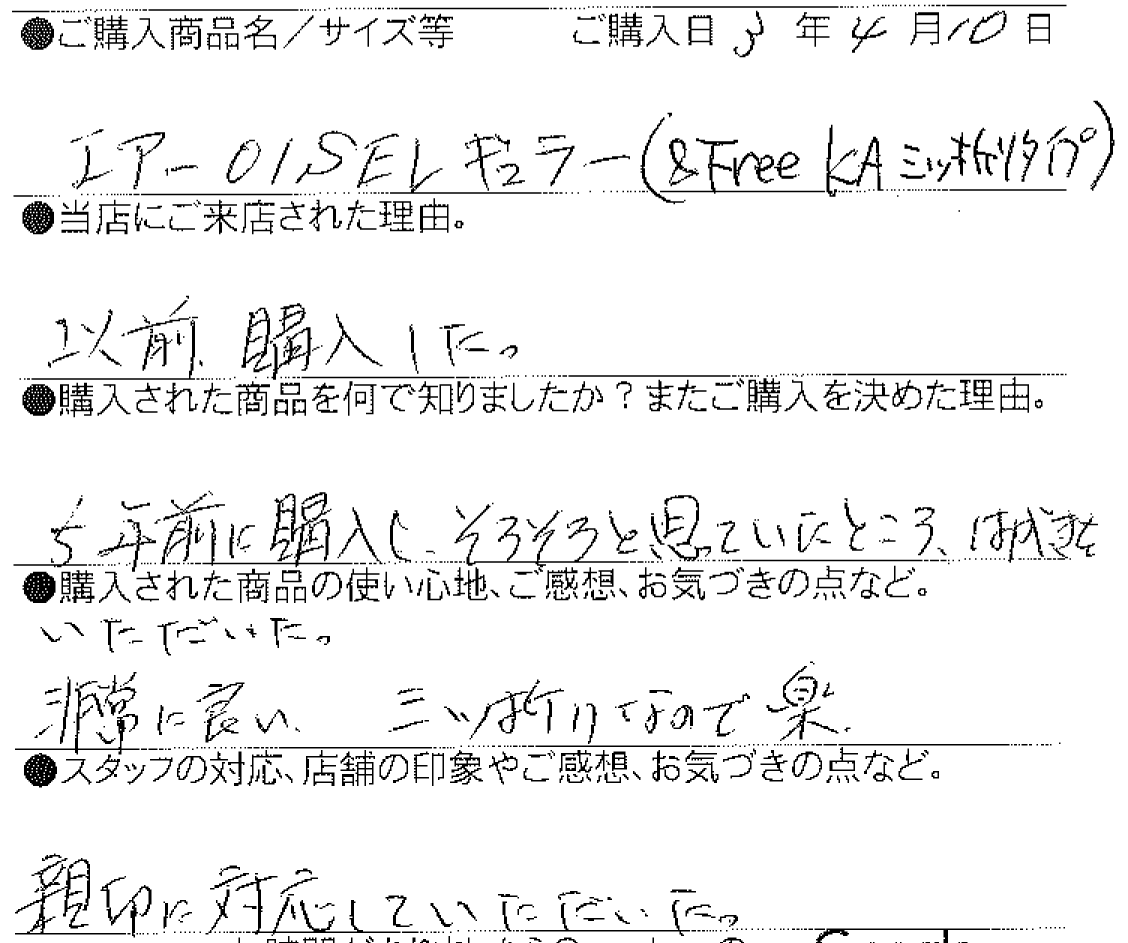 ●ご購入商品名／サイズ等　ご購入日 3 年 4 月 10 日
エアー 01 SE レギュラー (&Free KA 三ッ折りタイプ)
●当店にご来店された理由。
以前、購入した。
●購入された商品を何で知りましたか？またご購入を決めた理由。
5年前に購入し、そろそろと思っていたところ、はがきを
●購入された商品の使い心地、ご感想、お気づきの点など。
いただいた。
非常に良い。三ッ折りなので楽。
●スタッフの対応、店舗の印象やご感想、お気づきの点など。
親切に対応していただいた。